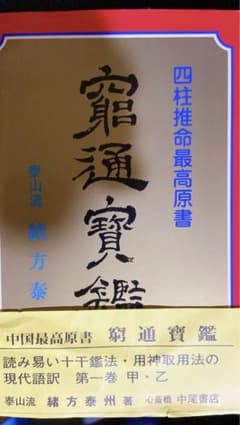 四柱推命最高原書
窮通寶鑑
泰山流 緒方泰
中国最高原書 窮通寶鑑
読み易い十干鑑法・用神取用法の
現代語訳 第一巻 甲・乙
泰山流 緒方泰州著 心斎橋 中尾書店